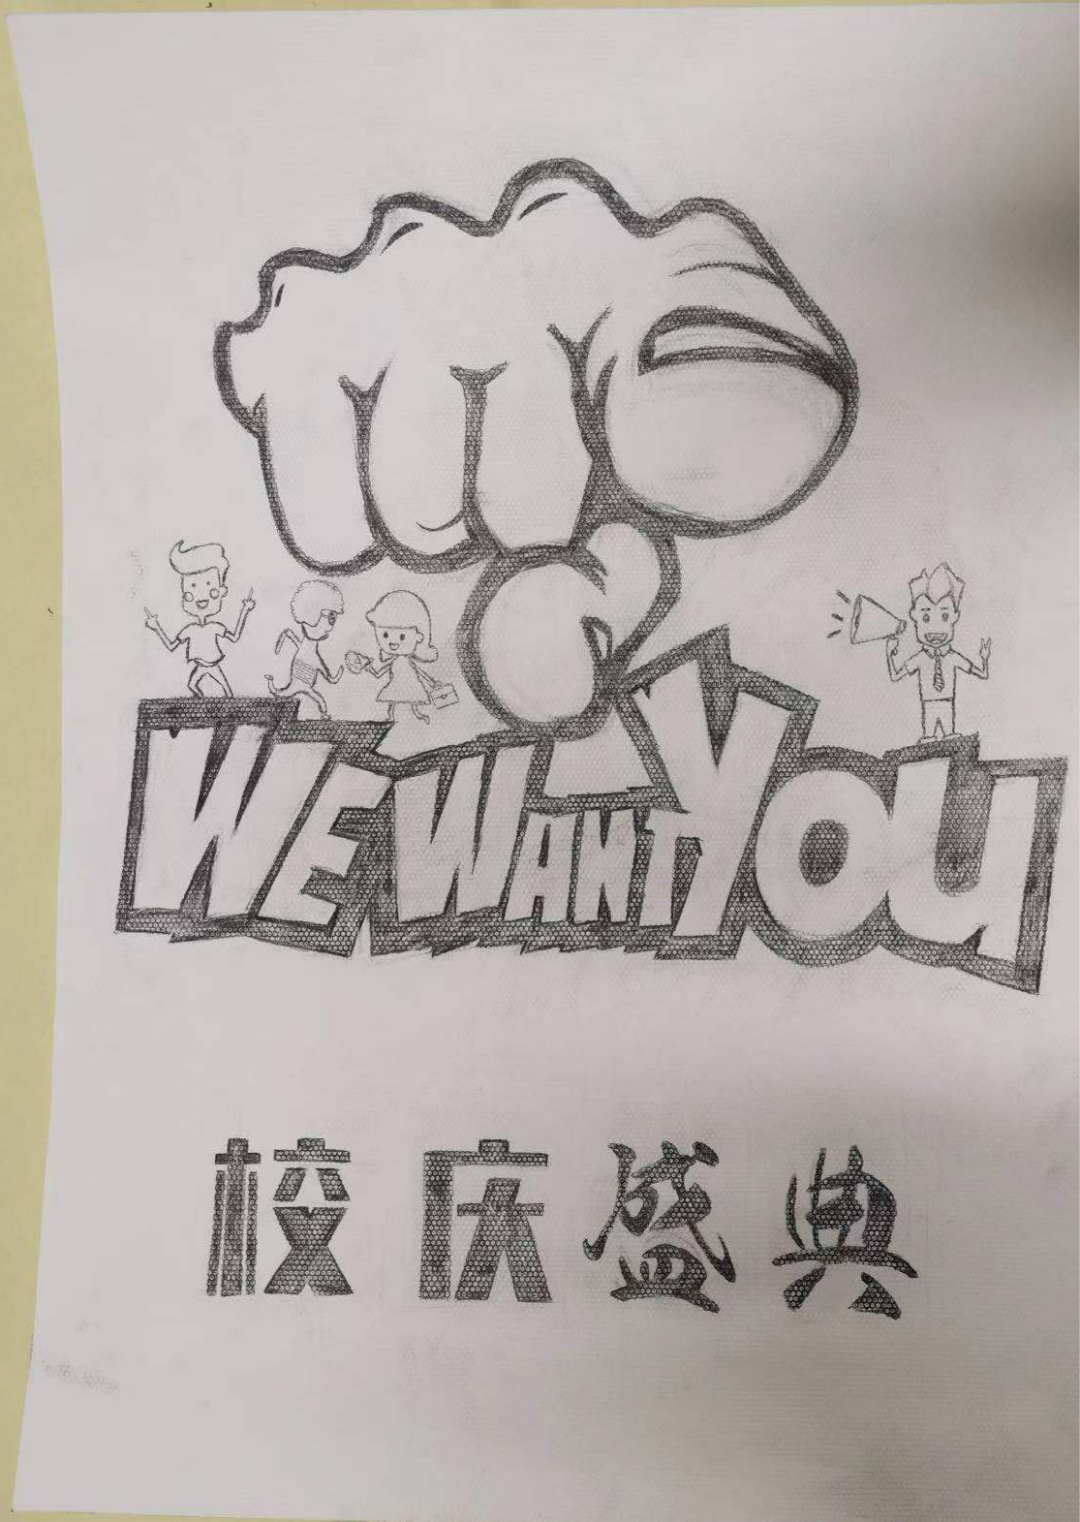 WE WANT YOU
校庆盛典